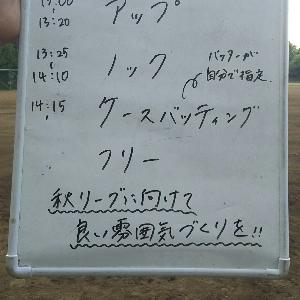 13:00
13:20
アップ
13:25
14:10
ノック
バッターが
自分で指定
14:15
ケースバッティング
フリー
秋リーグに向けて
良い雰囲気づくりを!!